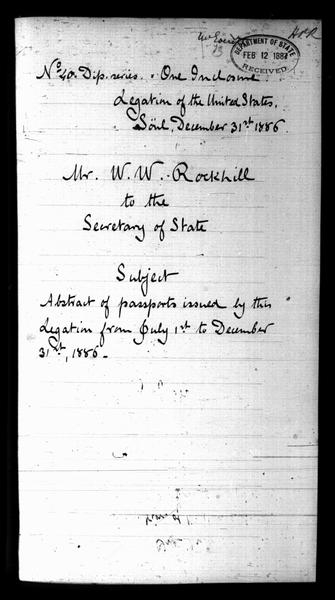 DEPARTMENT OF STATE
FEB 12 1887
RECEIVED
No 20. Dip. series. One Inclosure
Legation of the United States,
Söul, December 31st 1886.
Mr. W. W. Rockhill
to the
Secretary of State
Subject
Abstract of passports issued by this
Legation from July 1st to December
31st, 1886.